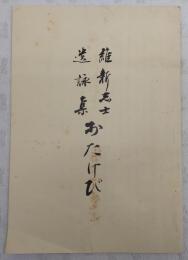 維新志士
遺詠集
おたけび